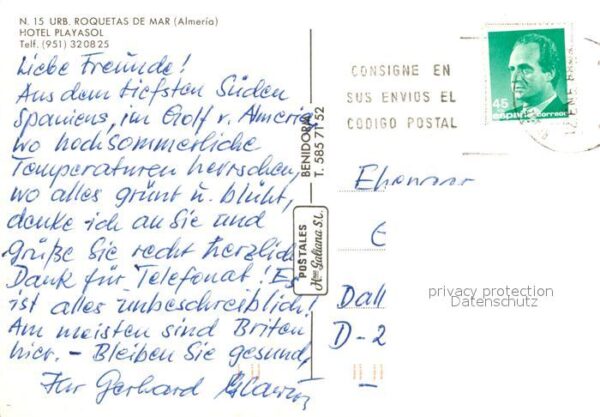 N. 15 URB. ROQUETAS DE MAR (Almería)
HOTEL PLAYASOL
Telf. (951) 320825
Liebe Freunde!
Aus dem tiefsten Süden
Spaniens, im Golf v. Almeria
wo hochsommerliche
Temperaturen herrschen,
wo alles grünt u. blüht,
denke ich an Sie und
grüße Sie recht herzlich
Dank für Telefonat! Es
ist alles unbeschreiblich!
Am meisten sind Briten
hier. - Bleiben Sie gesund,
Ihr Gerhard
BENIDORM
T. 585 71 52
POSTALES
Hnos Galiana S.L.
CONSIGNE EN
SUS ENVIOS EL
CODIGO POSTAL
45
España correos
Dall
D-2
privacy protection
Datenschutz